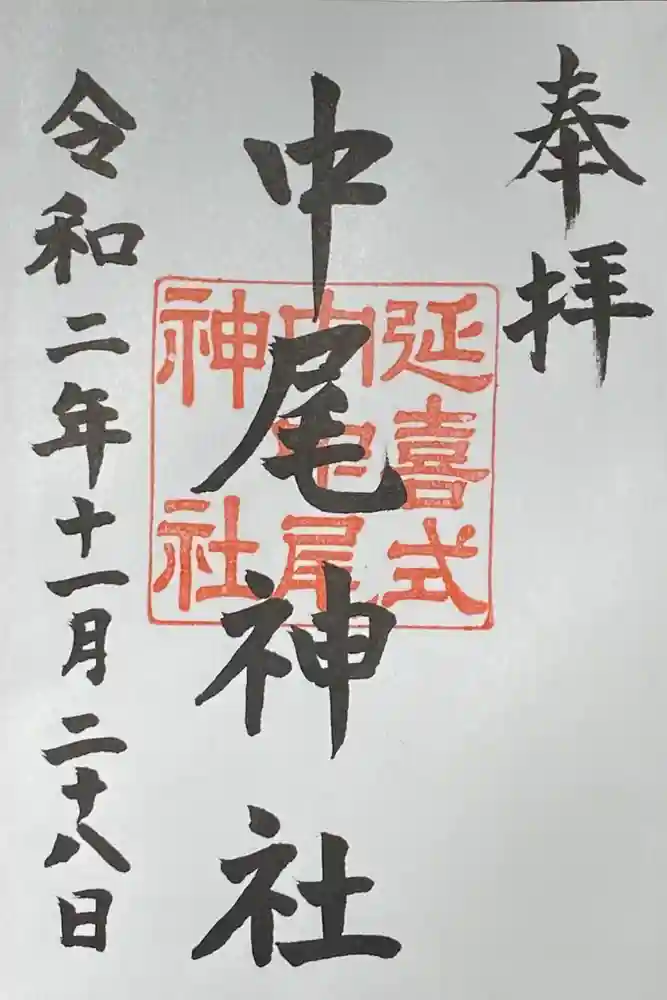 奉拝
延喜式
内中尾
神社
中尾神社
令和二年十一月二十八日